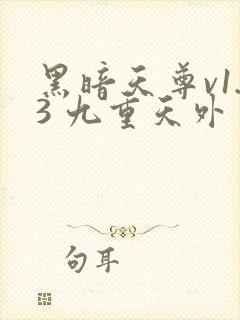 黑暗天尊v1.
3 九重天外
句耳